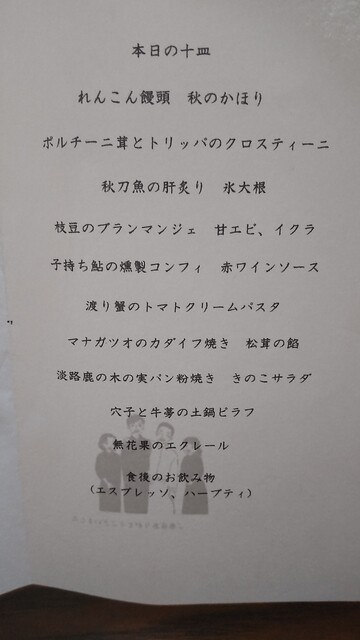 本日の十皿
れんこん饅頭　秋のかほり
ポルチーニ茸とトリッパのクロスティーニ
秋刀魚の肝炙り　氷大根
枝豆のブランマンジェ　甘エビ、イクラ
子持ち鮎の燻製コンフィ　赤ワインソース
渡り蟹のトマトクリームパスタ
マナガツオのカダイフ焼き　松茸の餡
淡路鹿の木の実パン粉焼き　きのこサラダ
穴子と牛蒡の土鍋ピラフ
無花果のエクレール
食後のお飲み物
(エスプレッソ、ハーブティ)